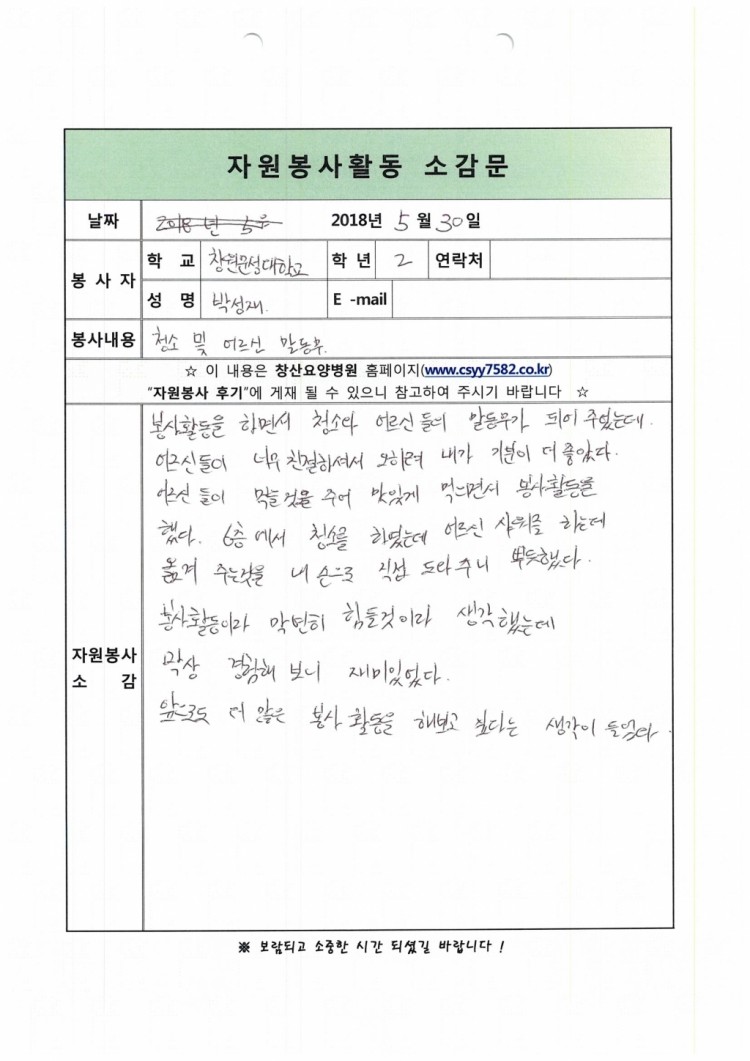 자원봉사활동 소감문
날짜 2018년 5월 30일
봉사자
학교 창원문성대학교 학년 2 연락처
성명 박성재. E-mail
봉사내용 청소 및 어르신 말동무.
☆ 이 내용은 창산요양병원 홈페이지(www.csyy7582.co.kr)
"자원봉사 후기"에 게재 될 수 있으니 참고하여 주시기 바랍니다 ☆
자원봉사
소감
봉사활동을 하면서 청소와 어르신들의 말동무가 되어 주었는데.
어르신들이 너무 친절하셔서 오히려 내가 기분이 더 좋았다.
어르신 들이 먹을것을 주어 맛있게 먹으면서 봉사활동을
했다. 6층에서 청소를 하였는데 어르신 샤워를 하는데
옮겨 주는것을 내 손으로 직접 도와주니 뿌듯했다.
봉사활동이라 막연히 힘들것이라 생각했는데
막상 경험해 보니 재미있었다.
앞으로도 더 많은 봉사 활동을 해보고 싶다는 생각이 들었다.
※ 보람되고 소중한 시간 되셨길 바랍니다 !